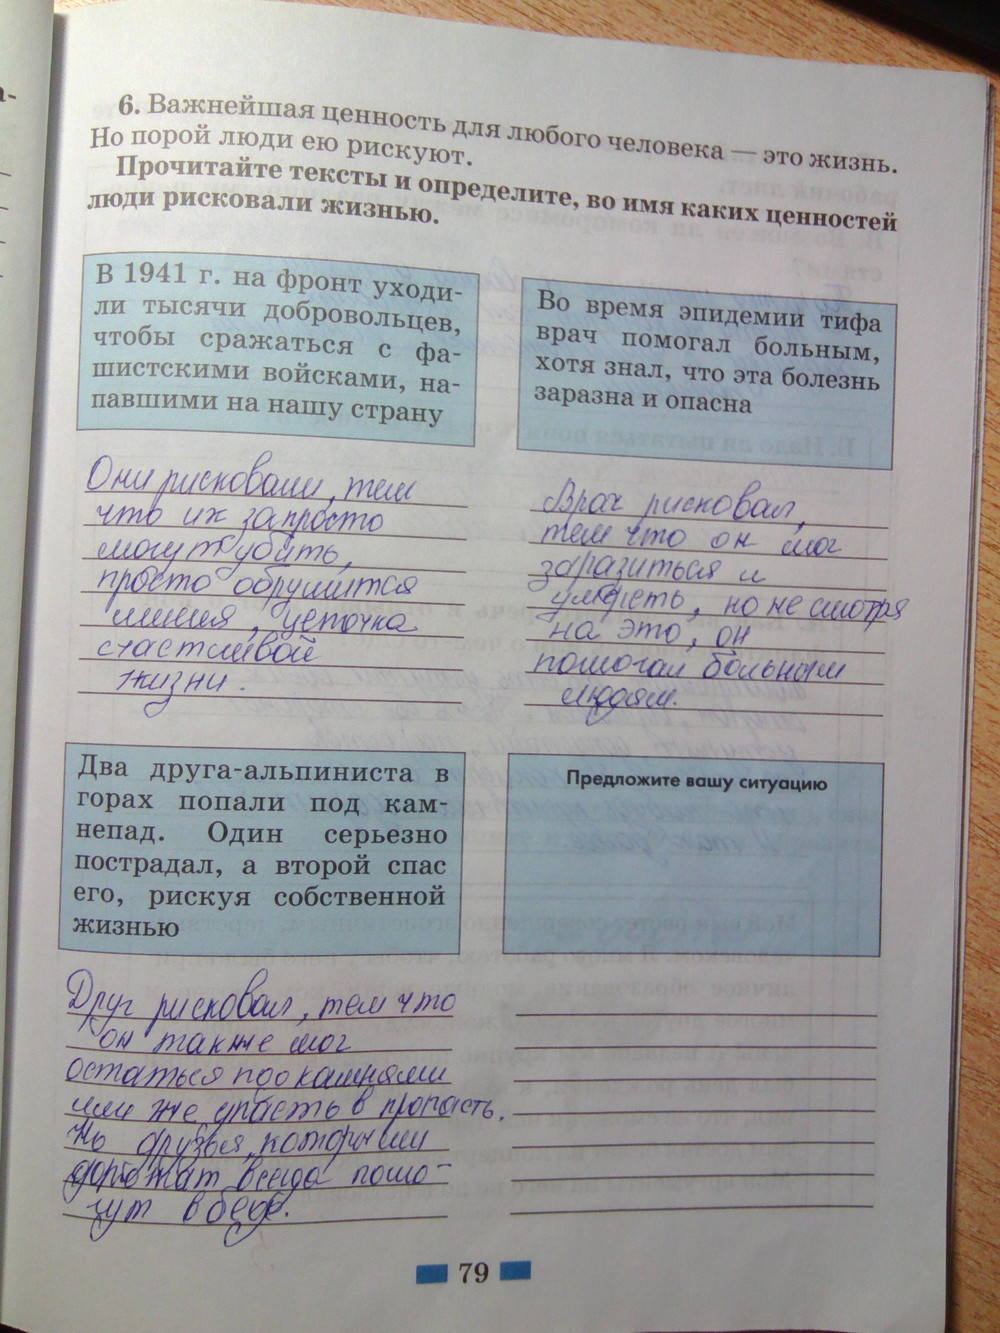 6. Важнейшая ценность для любого человека — это жизнь.
Но порой люди ею рискуют.
Прочитайте тексты и определите, во имя каких ценностей
люди рисковали жизнью.
В 1941 г. на фронт уходи-
ли тысячи добровольцев,
чтобы сражаться с фа-
шистскими войсками, на-
павшими на нашу страну
Они рисковали, тем
что их запросто
могут убить,
просто обрушится
линия, цепочка
счастливой
жизни.
Во время эпидемии тифа
врач помогал больным,
хотя знал, что эта болезнь
заразна и опасна
Врач рисковал,
тем что он мог
заразиться и
умереть, но не смотря
на это, он
помогал больным
людям.
Два друга-альпиниста в
горах попали под кам-
непад. Один серьезно
пострадал, а второй спас
его, рискуя собственной
жизнью
Друг рисковал, тем что
он также мог
остаться под камнями
или же упасть в пропасть.
Но друзья, которыми
дорожат всегда помо-
гут в беде.
Предложите вашу ситуацию
79